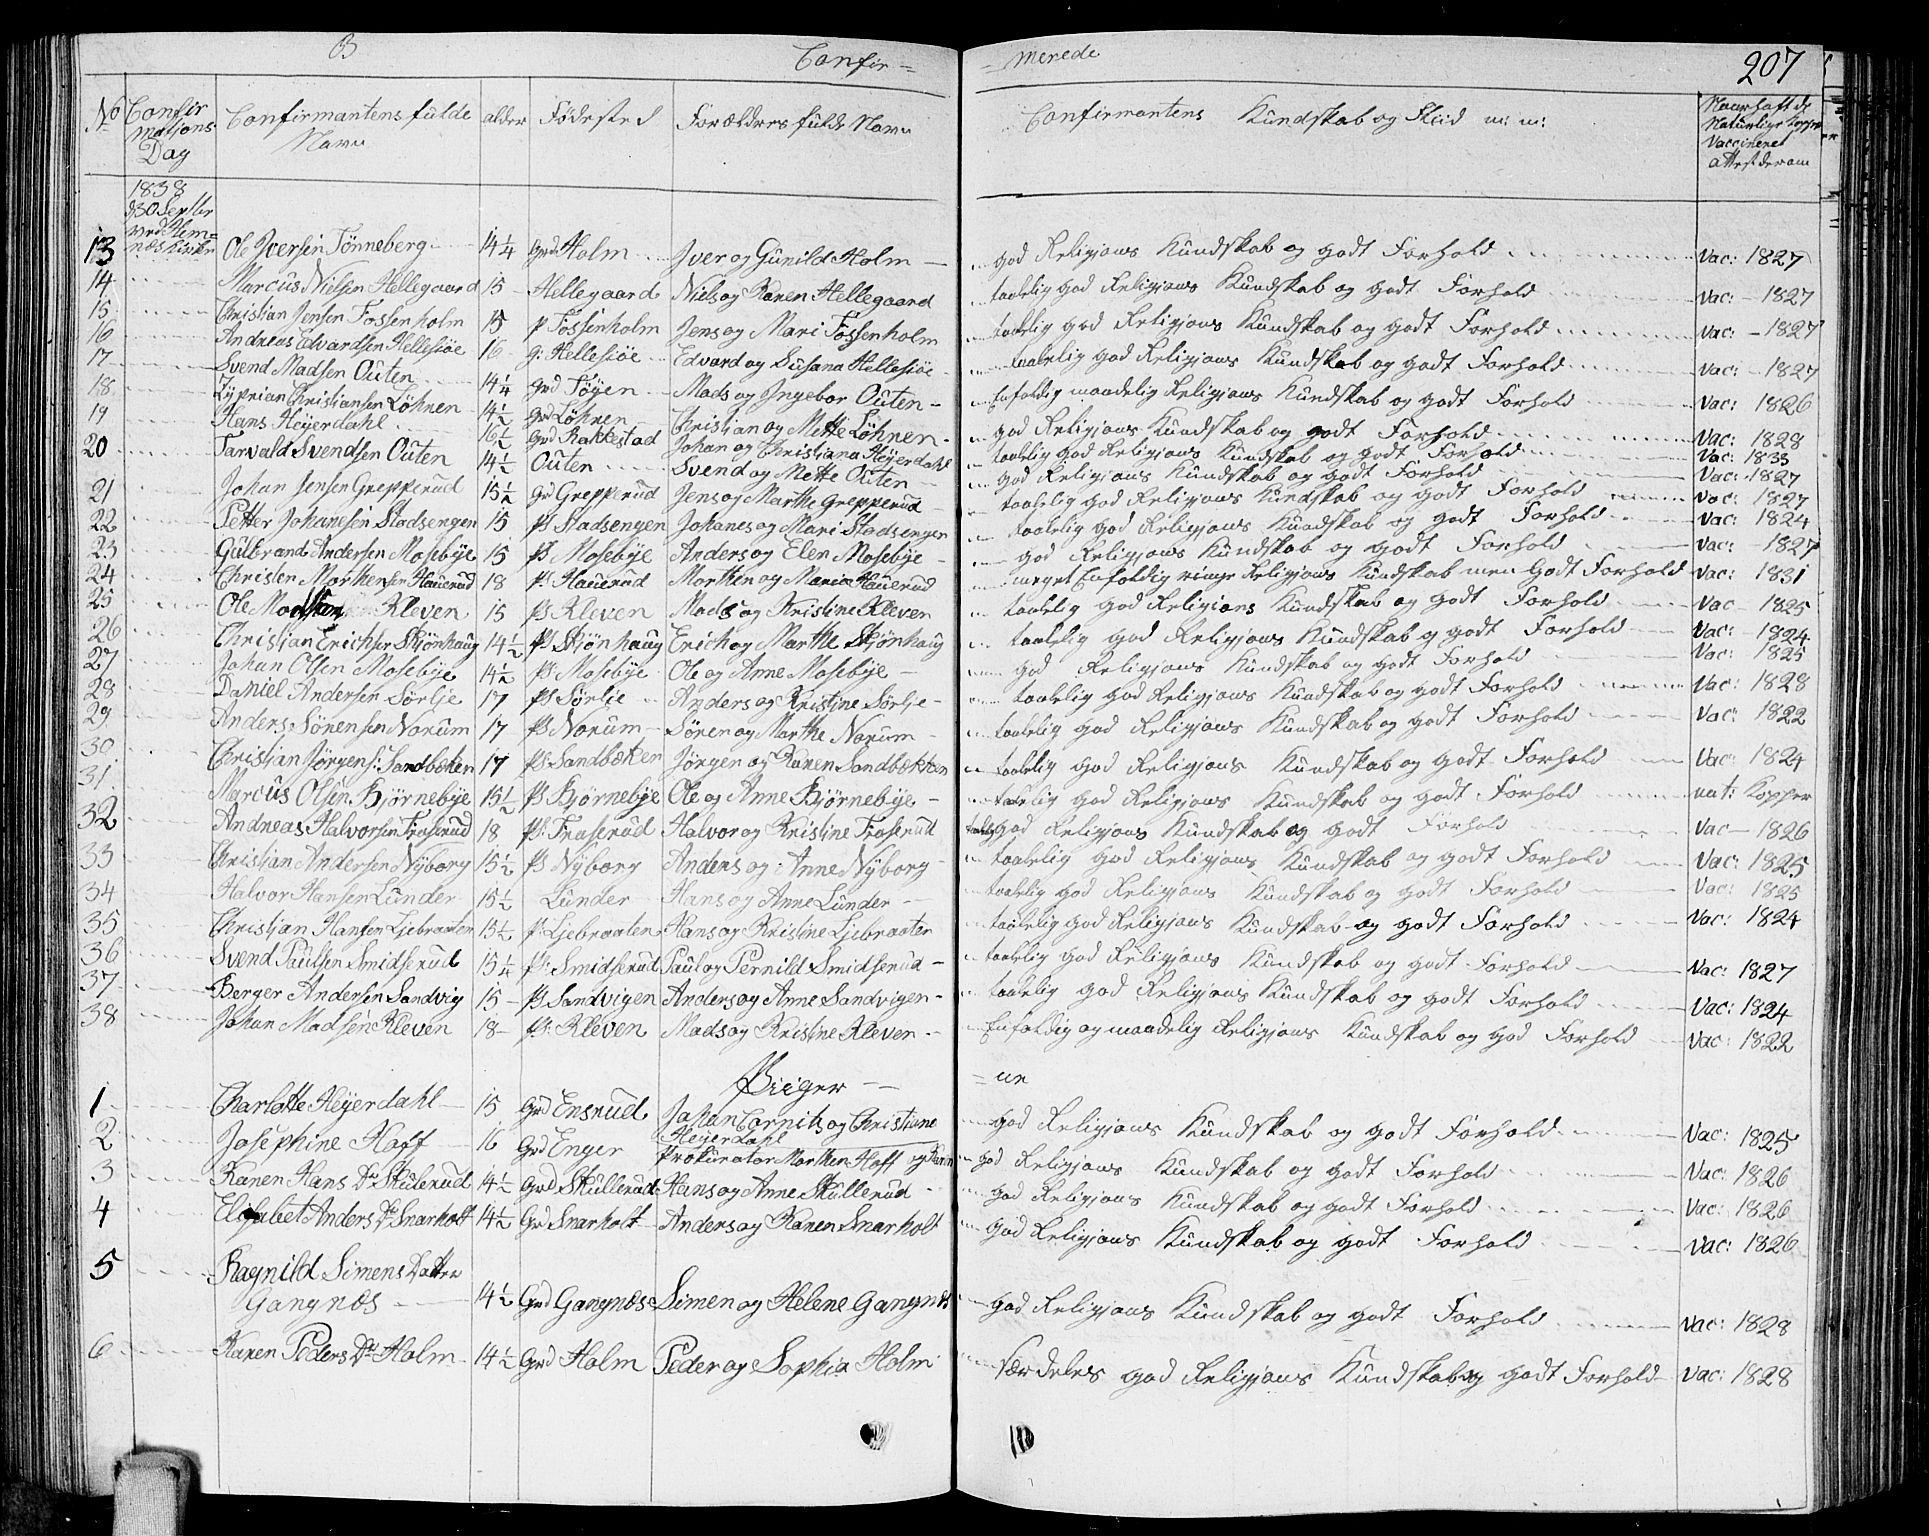 B
Confir = = merede
207
No Confirmations Dag Confirmantens fulde Navn alder Fødested Forældres fulde Navn Confirmantens Kundskab og Fliid m: m: Naar haft de Naturlige Kopper Vaccineret attest derom
1838
d 30 Septbr
ved Hem=
næs Kirke
13 Ole Iversen Tønneberg 14 1/4 Grd Holm Iver og Gunild Holm god Religjons Kundskab og godt Forhold Vac: 1827
14 Marcus Nielsen Hellegaard 15 Hellegaard Niels og Karen Hellegaard taalelig god Religjons Kundskab og godt Forhold Vac: 1827
15 Christian Jensen Fossenholm 15 P Fossenholm Jens og Mari Fossenholm taalelig god Religjons Kundskab og godt Forhold Vac: 1827
16 Andreas Edvardsen Hellesiøe 16 G: Hellesiøe Edvard og Susana Hellesiøe taalelig god Religjons Kundskab og godt Forhold Vac: 1827
17 Svend Madsen Outen 14 1/4 Grd Tøyen Mads og Ingebor Outen Enfoldig maadelig Religjons Kundskab og godt Forhold Vac: 1826
18 Zyprian Christiansen Løhren 14 1/2 Grd Løhren Christian og Mette Løhren god Religjons Kundskab og godt Forhold Vac: 1828
19 Hans Heyerdahl 16 1/2 Grd Rakkestad Johan og Christiana Heyerdahl taalelig god Religjons Kundskab og godt Forhold Vac: 1833
20 Tarvald Svendsen Outen 14 1/2 Outen Svend og Mette Outen god Religjons Kundskab og godt Forhold Vac: 1827
21 Johan Jensen Grepperud 15 1/2 Grd Grepperud Jens og Marthe Grepperud taalelig god Religjons Kundskab og godt Forhold Vac: 1827
22 Petter Johanesen Stadsengen 15 Ps Stadsengen Johanes og Mari Stadsengen taalelig god Religjons Kundskab og godt Forhold Vac: 1824
23 Gulbrand Andersen Mosebye 15 Ps Mosebye Anders og Elen Mosebye god Religjons Kundskab og godt Forhold Vac: 1827
24 Christen Morthensen Hauerud 18 P: Hauerud Morthen og Maria Hauerud meget Enfoldig ringe Religjons Kundskab men Godt Forhold Vac: 1831
25 Ole Madsen Kleven 15 Ps Kleven Mads og Kristine Kleven taalelig god Religions Kundskab og godt Forhold Vac 1825
26 Christian Erichsen Skjønhaug 14 1/2 Ps Skjønhaug Erich og Marthe Skjønhaug taalelig god Religjons Kundskab og godt Forhold Vac: 1824
27 Johan Olsen Mosebye 14 1/2 Ps: Mosebye Ole og Anne Mosebye god Religjons Kundskab og godt Forhold Vac: 1825
28 Daniel Andersen Sørlje 17 Ps Sørlie Anders og Kristine Sørlje taalelig god Religjons Kundskab og godt Forhold Vac: 1828
29 Anders Sørensen Norum 17 Ps Norum Søren og Marthe Norum taalelig god Religjons Kundskab og godt Forhold Vac: 1822
30 Christian Jørgens: Sandbæken 17 Ps: Sandbæken Jørgen og Karen Sandbækken taalelig god Religjons Kundskab og godt Forhold Vac: 1824
31 Marcus Olsen Bjørnebye 15 1/2 Ps Bjørnebye Ole og Anne Bjørnebye taalelig god Religjons Kundskab og godt Forhold nat: Kopper
32 Andreas Halvorsen Traserud 18 Ps: Traserud Halvor og Kristine Traserud taalelig god Religjons Kundskab og godt Forhold Vac 1826
33 Christian Andersen Nyborg 15 1/2 Ps Nyborg Anders og Anne Nyborg taalelig god Religjons Kundskab og godt Forhold Vac: 1825
34 Halvor Hansen Lunder 15 1/2 Lunder Hans og Anne Lunder taalelig god Religjons Kundskab og godt Forhold Vac: 1825
35 Christian Hansen Ljebraaten 15 1/2 P: Ljebraaten Hans og Kristine Ljebraaten taalelig god Religjons Kundskab og godt Forhold Vac: 1824
36 Svend Paulsen Smidserud 15 1/4 P: Smidserud Paul og Pernild Smidserud taalelig god Religjons Kundskab og godt Forhold Vac: 1827
37 Berger Andersen Sandvig 15 Ps Sandvigen Anders og Anne Sandvigen taalelig god Religjons Kundskab og godt Forhold Vac: 1824
38 Johan Madsen Kleven 18 Ps: Kleven Mads og Kristine Kleven Enfoldig og maadelig Religjons Kundskab og god Forhold Vac: 1822
Piiger = ne
1 Charlotte Heyerdahl 15 Grd Ensrud Johan Cornits og Christiane Heyerdahl god Religjons Kundskab og godt Forhold Vac: 1825
2 Josephine Hoff 16 Grd Enger Prokurator Morthen Hoff og Karen god Religjons Kundskab og godt Forhold Vac: 1826
3 Karen Hans Dr Skulerud 14 1/2 Grd Skullerud Hans og Anne Skullerud god Religjons Kundskab og godt Forhold Vac: 1826
4 Elisabet Anders Dr Snarholt 14 1/2 Grd Snarholt Anders og Karen Snarholt god Religjons Kundskab og godt Forhold Vac: 1826
5 Ragnild Simens Datter
Gangnæs 14 1/2 Grd Gangnæs Simen og Helene Gangnæs god Religjons Kundskab og godt Forhold Vac: 1828
6 Karen Peders Dr Holm 14 1/2 Grd Holm Peder og Sophia Holm Særdeles god Religjons Kundskab og godt Forhold Vac: 1828